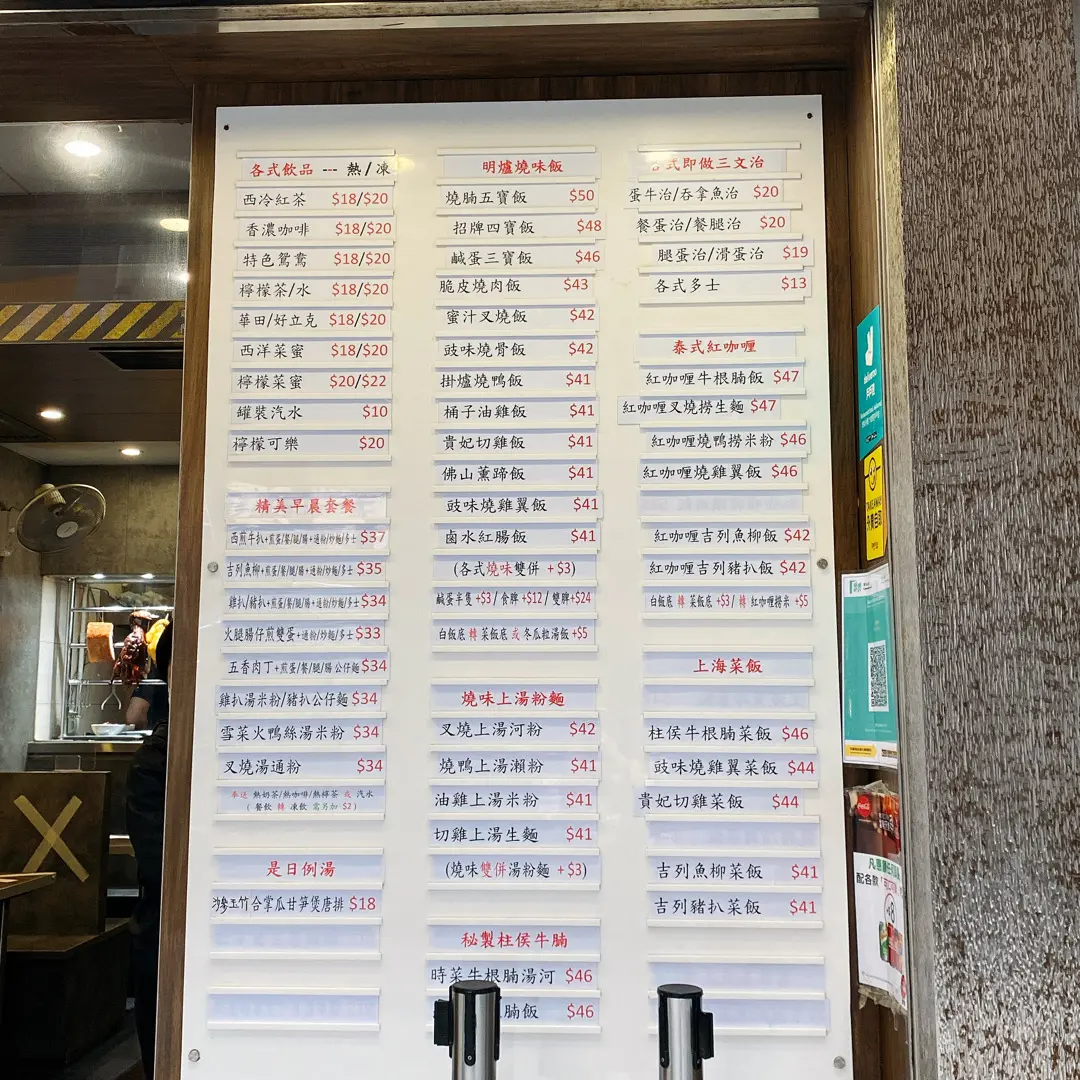 各式飲品 --- 熱/凍
西冷紅茶 $18/$20
香濃咖啡 $18/$20
特色鴛鴦 $18/$20
檸檬茶/水 $18/$20
華田/好立克 $18/$20
西洋菜蜜 $18/$20
檸檬菜蜜 $20/$22
罐裝汽水 $10
檸檬可樂 $20
精美早晨套餐
西煎牛扒+煎蛋/餐/腿/腸+通粉/炒麵/多士 $37
吉列魚柳+煎蛋/餐/腿/腸+通粉/炒麵/多士 $35
雞扒/豬扒+煎蛋/餐/腿/腸+通粉/炒麵/多士 $34
火腿腸仔煎雙蛋+通粉/炒麵/多士 $33
五香肉丁+煎蛋/餐/腿/腸 公仔麵 $34
雞扒湯米粉/豬扒公仔麵 $34
雪菜火鴨絲湯米粉 $34
叉燒湯通粉 $34
奉送 熱奶茶/熱咖啡/熱檸茶 或 汽水
(餐飲 轉 凍飲 需另加 $2)
是日例湯
玉竹合掌瓜甘筍煲唐排 $18
明爐燒味飯
燒腩五寶飯 $50
招牌四寶飯 $48
鹹蛋三寶飯 $46
脆皮燒肉飯 $43
蜜汁叉燒飯 $42
豉味燒骨飯 $42
掛爐燒鴨飯 $41
桶子油雞飯 $41
貴妃切雞飯 $41
佛山薰蹄飯 $41
豉味燒雞翼飯 $41
鹵水紅腸飯 $41
(各式燒味雙併 + $3)
鹹蛋半隻 +$3/食髀 +$12/雙髀+$24
白飯底 轉 菜飯底 或 冬瓜粒湯飯 +$5
燒味上湯粉麵
叉燒上湯河粉 $42
燒鴨上湯瀨粉 $41
油雞上湯米粉 $41
切雞上湯生麵 $41
(燒味雙併湯粉麵 + $3)
秘製柱侯牛腩
時菜牛根腩湯河 $46
腩飯 $46
各式即做三文治
蛋牛治/吞拿魚治 $20
餐蛋治/餐腿治 $20
腿蛋治/滑蛋治 $19
各式多士 $13
泰式紅咖喱
紅咖喱牛根腩飯 $47
紅咖喱叉燒撈生麵 $47
紅咖喱燒鴨撈米粉 $46
紅咖喱燒雞翼飯 $46
紅咖喱吉列魚柳飯 $42
紅咖喱吉列豬扒飯 $42
白飯底 轉 菜飯底 +$3/轉 紅咖喱撈米 +$5
上海菜飯
柱侯牛根腩菜飯 $46
豉味燒雞翼菜飯 $44
貴妃切雞菜飯 $44
吉列魚柳菜飯 $41
吉列豬扒菜飯 $41
deliveroo
戶戶送
TAKEAWAY
外賣自取